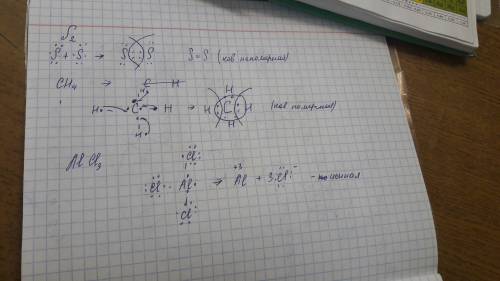 S₂
S + S → S S S=S (ков неполярная)
CH₄ → C — H
H
H C H → H C H (ков полярная)
H H
AlCl₃
Cl
Cl Al → Al⁺³ + 3Cl⁻ - ионная
Cl